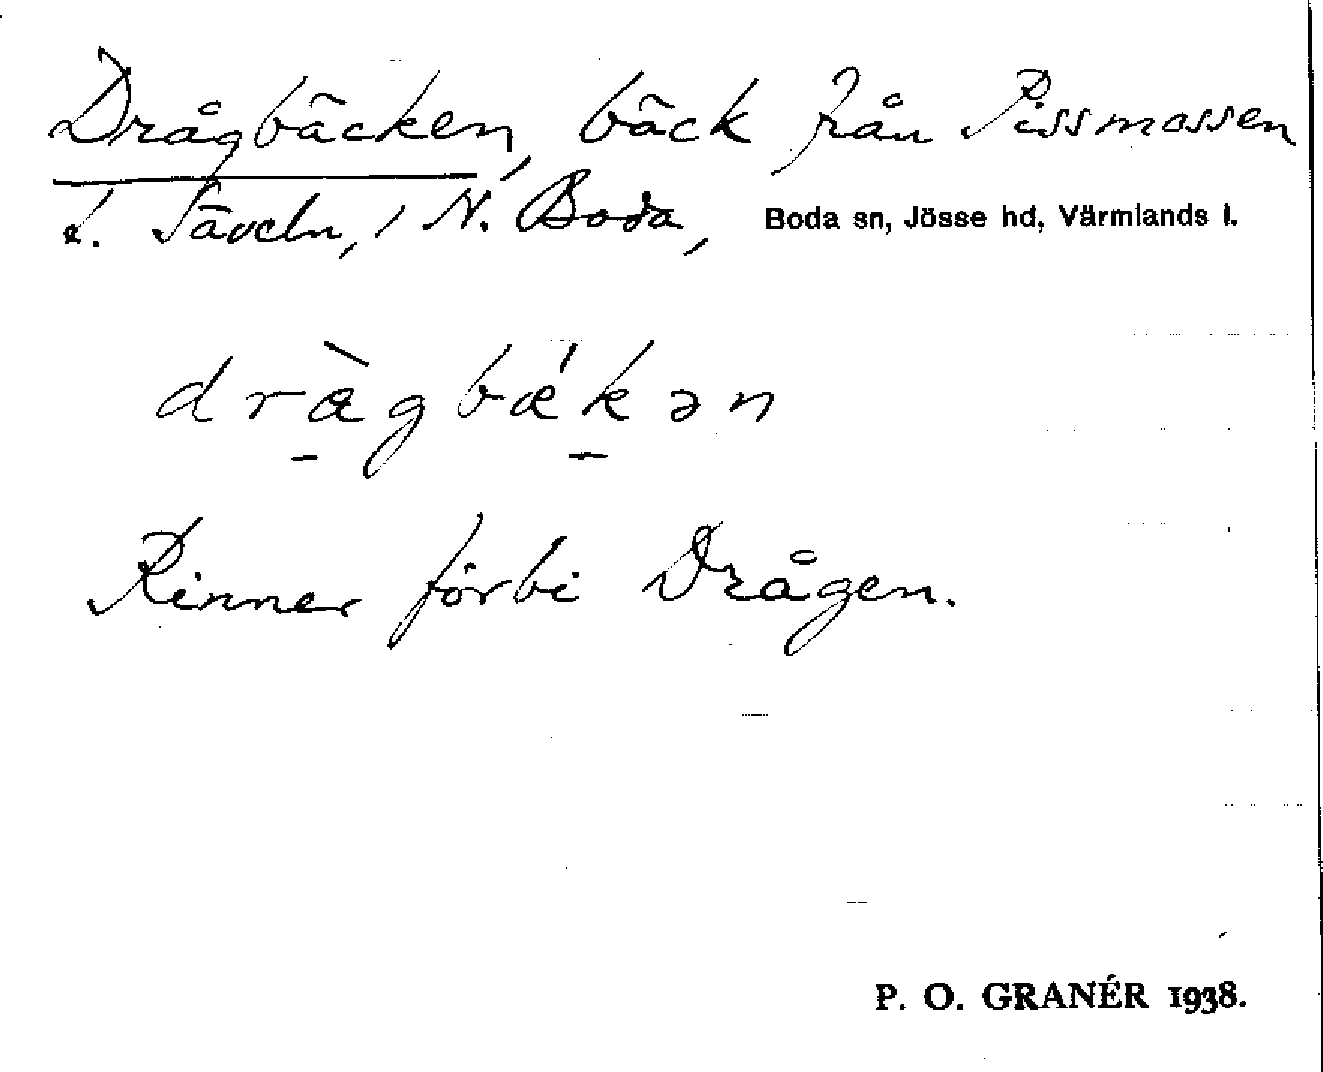 Drågbäcken, bäck från Pissmossen
t. Säveln, i N. Boda, Boda sn, Jösse hd, Värmlands l.
dræ̀gbǽkən
Rinner förbi Drågen.
P. O. GRANÉR 1938.